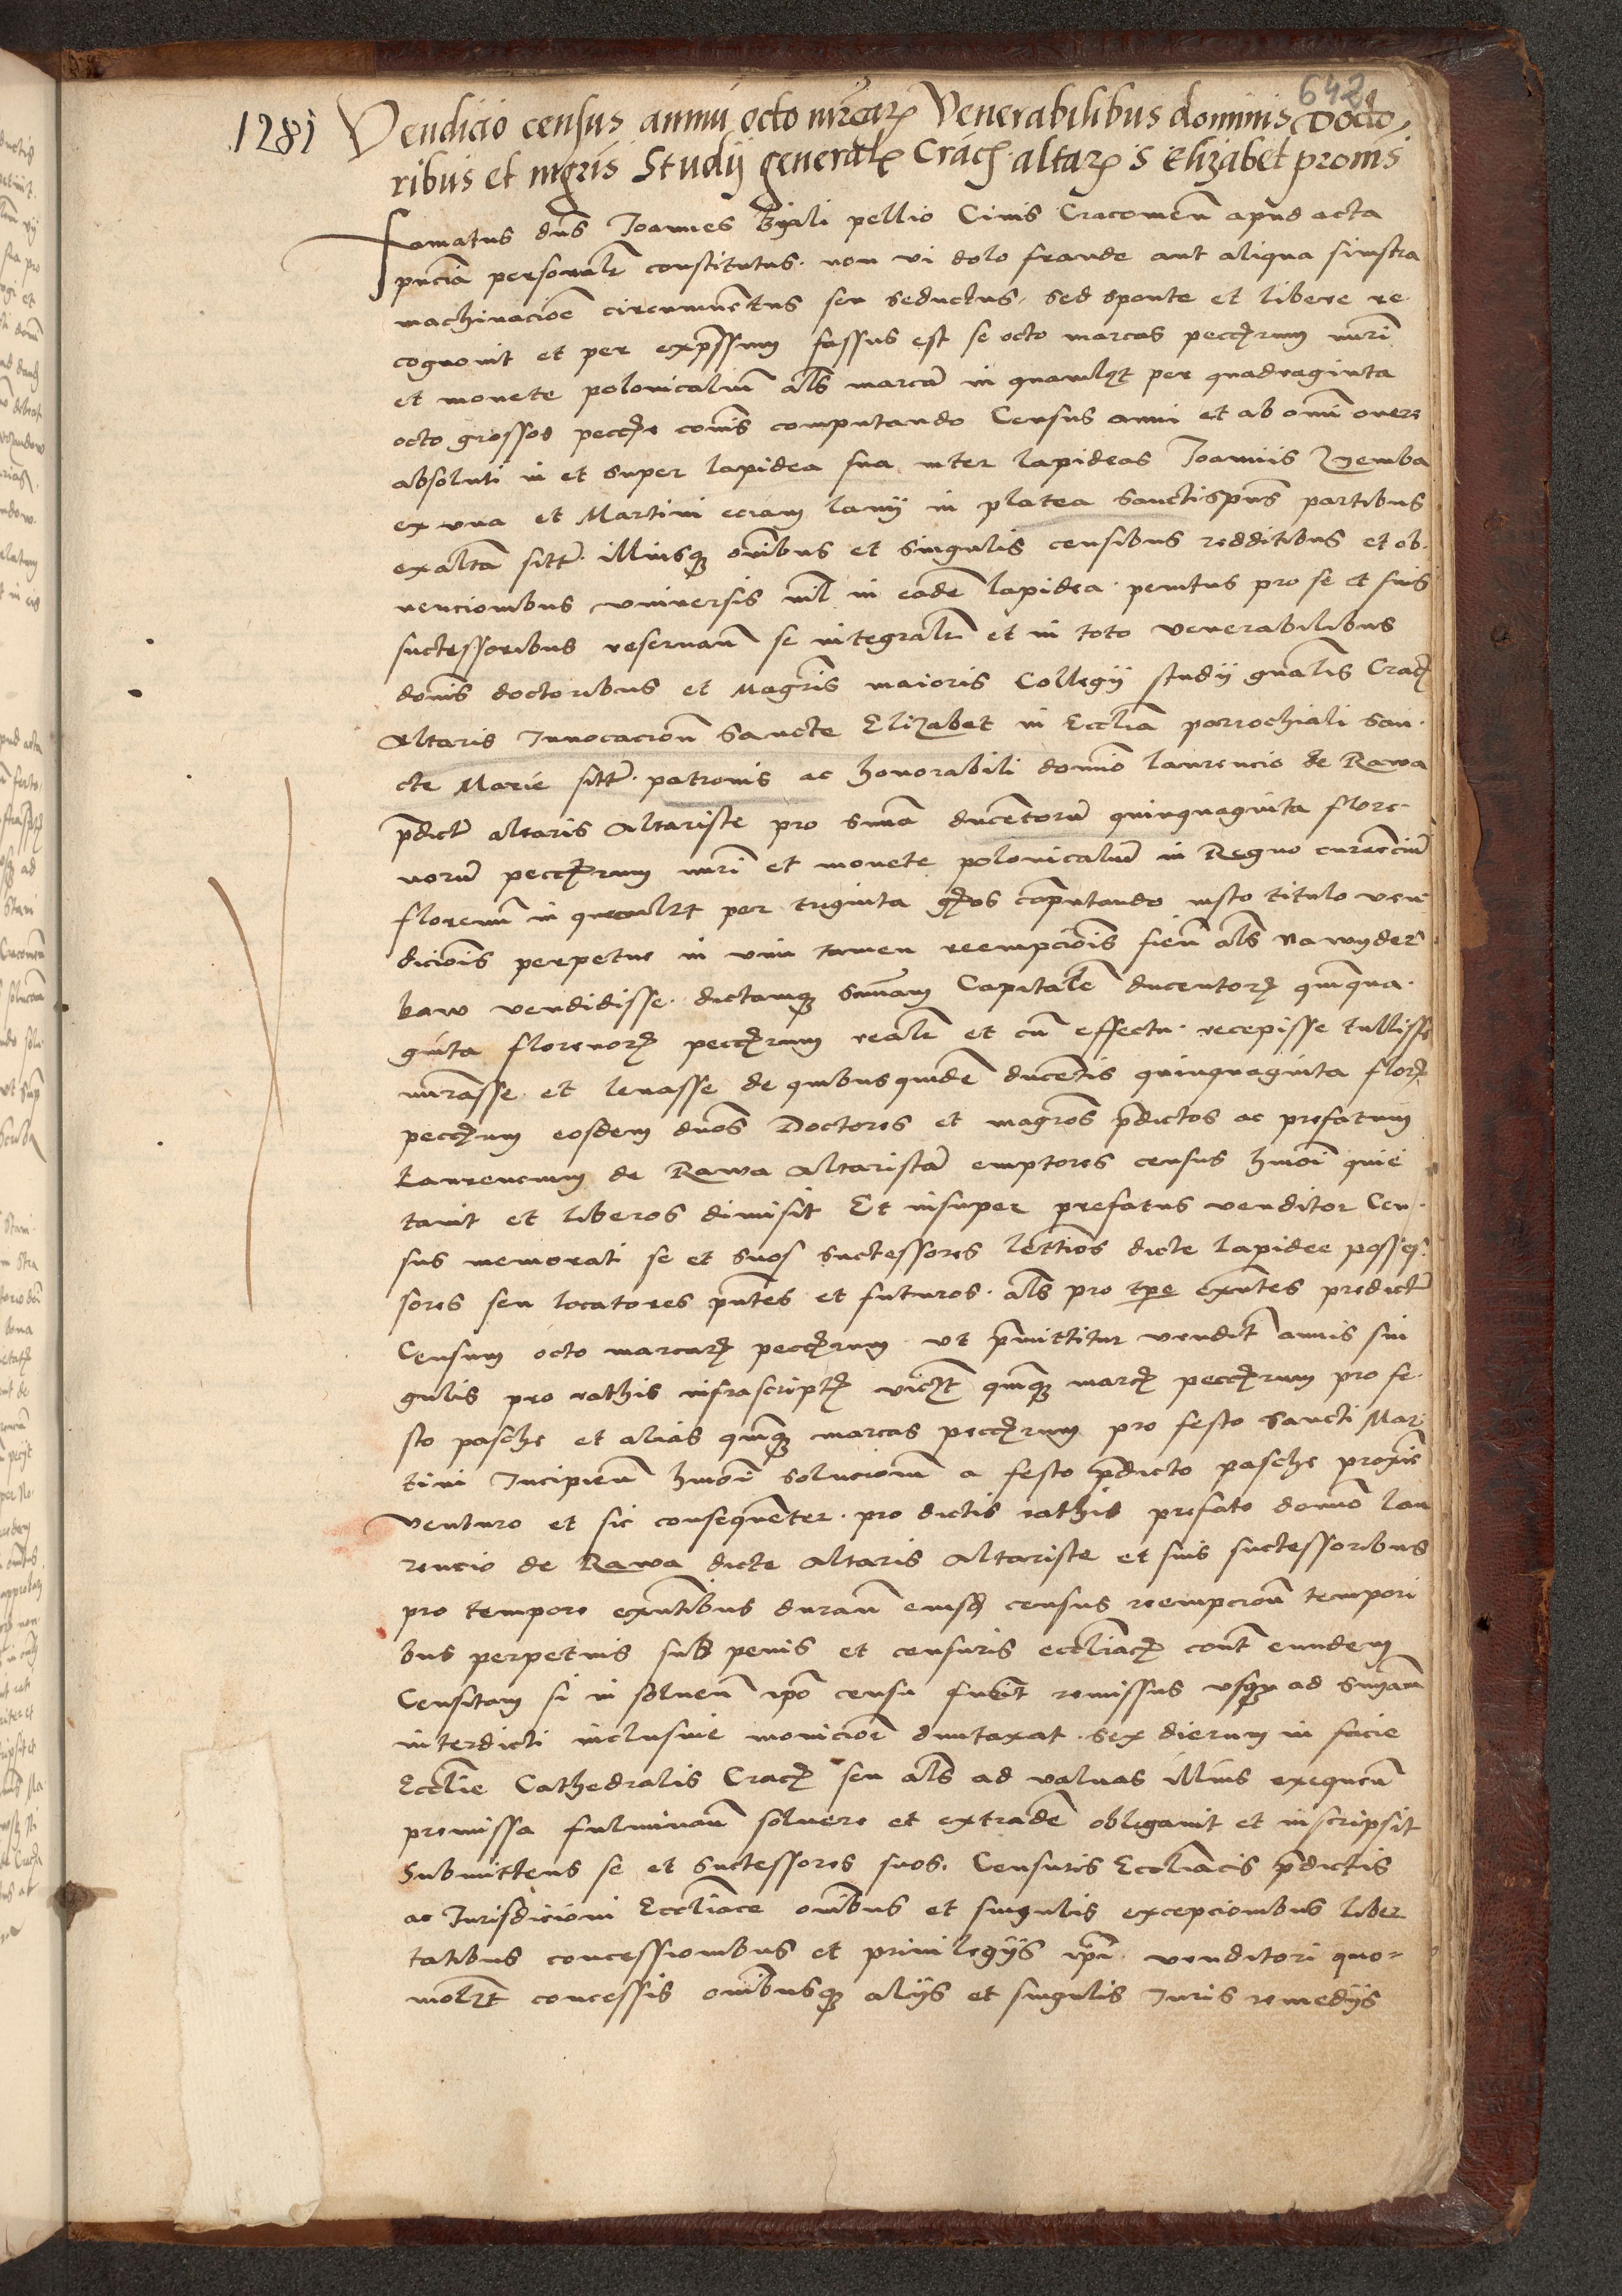 642
1281 Vendicio census annui octo mrcarꝝ Venerabilibus dominis Docto
ribus et mgris Studij generalꝭ Cracꝭ altarꝭ S Elizabet pronis
Famatus dns Joannes Byali pellio Civis Cracovien apud acta
pncia personalr constitutus. non vi dolo fraude aut aliqua sinistra
machinacione circumventus seu seductus, sed sponte et libere re
cognovit et per expressum fassus est se octo marcas pecciarum numeri
et monete polonicalium als marcam in quamlqt per quadraginta
octo grossos peccie comis computando Census anui et ab omi onere
absoluti in et super lapidea sua inter lapideas Joannis Zyemba
ex una et Martini eciam lanij in platea Sanctispus partibus
ex altera sitt. illiusqꝫ omibus et singulis censibus redditibus et ob
vencionibus universis nil in eadem lapidea penitus pro se et suis
successoribus reservan se integralr et in toto venerabilibus
donis doctoribus et Magris maioris Collegij studij gnalis Cracꝭ
Altaris Invocacion Sancte Elizabet in Ecclia parrochiali San
cte Marie sitt. patronis ac honorabili domino Laurencio de Rawa
pdicti altaris Altariste pro suma ducentorum quinquaginta flore
norum pecciarum numeri et monete polonicalium in Regno currencium
florenum in quemlzt per triginta gros computando iusto titulo ven
dicionis perpetue in vim tamen reempcionis fien als na wyder
kaw vendidisse. dictamqꝫ summam Capitalem ducentorꝝ quinqua
ginta florenorꝝ pecciarum realr et cum effectu recepisse tullisse
numerasse et levasse de quibusquidem ducentis quinquaginta florꝭ
pecciarum eosdem dnos Doctores et magros pdictos ac prefatum
Laurencium de Rawa Altaristam emptores census hmoi quie
tavit et liberos dimisit Et insuper prefatus venditor Cen
sus memorati se et suos successores lettimos dicte lapidee posses
sores seu locatores pntes et futuros. als pro tpe exntes predictum
Censum octo marcarꝝ pecciarum ut pmittitur vendit annis sin
gulis pro rathis infrascriptꝭ vidzt quinqꝫ marcꝭ pecciarum pro fe
sto pasche et alias quinqꝫ marcas pecciarum pro festo Sancti Mar
tini Incipien hmoi solucionem a festo pdicto pasche proxie
venturo et sic consequenter. pro dictis rathis prefato domino Lau
rencio de Rawa dicte Altaris Altariste et suis successoribus
pro tempore exntibus duran eiusdꝭ census reempcion tempori
bus perpetuis sub penis et censuris eccliacꝭ contra eundem
Censitam si in solven ipo censu fuerit remissus usqꝫ ad snniam
interdicti inclusive monicione duntaxat sex dierum in facie
Ecclie Cathedralis Cracꝭ seu als ad valvas illius exequen
premissa fulminan solvere et extradere obligavit et inscripsit
Submittens se et successores suos. Censuris Eccliacis pdictis
ac Jurisdicioni Eccliace omibus et singulis excepcionibus liber
tatibus concessionibus et privilegijs ipi venditori quo
molzt concessis omibusqꝫ alijs et singulis Juris remedijs